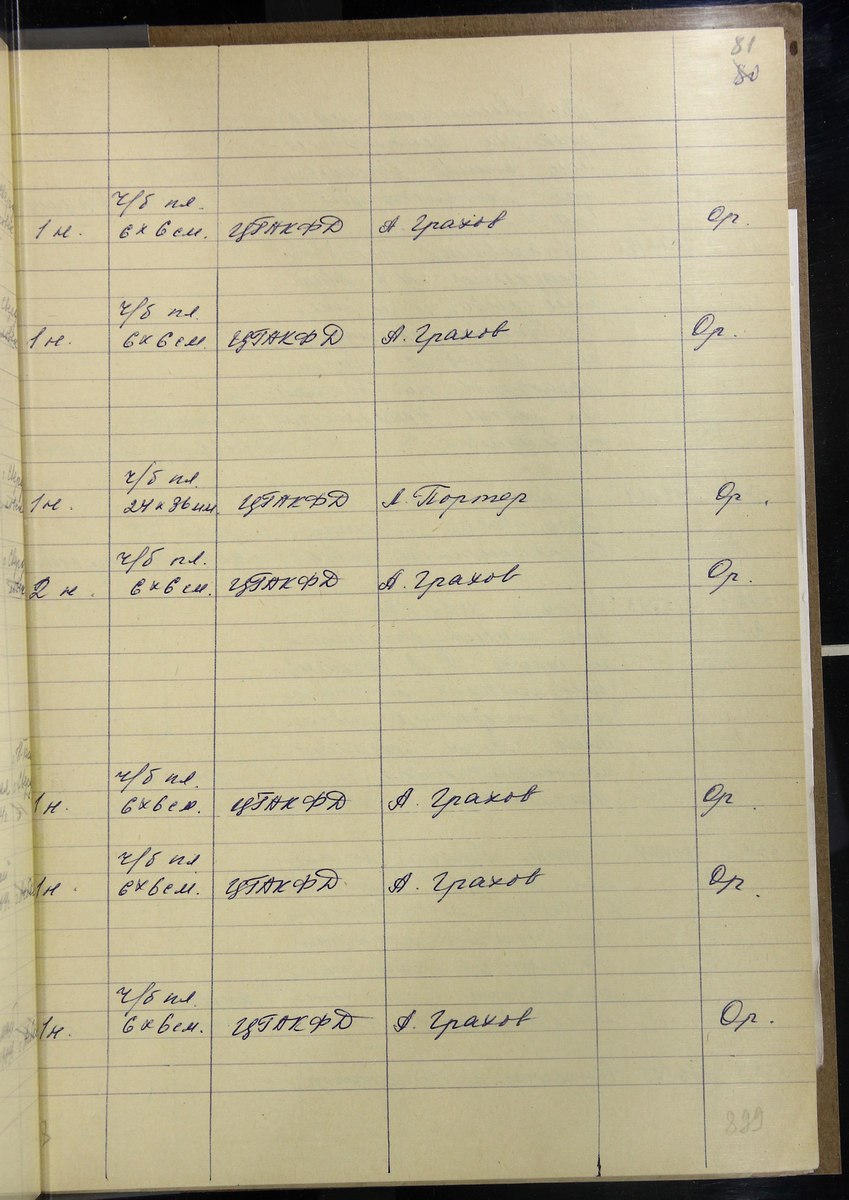 81
80
ч/б пл.
1 н. 6×6 см. ЦГАКФД А. Грахов Ор.
ч/б пл.
1 н. 6×6 см. ЦГАКФД А. Грахов Ор.
ч/б пл.
1 н. 24×36 мм. ЦГАКФД Л. Портер Ор.
ч/б пл.
2 н. 6×6 см. ЦГАКФД А. Грахов Ор.
ч/б пл.
1 н. 6×6 см. ЦГАКФД А. Грахов Ор.
ч/б пл
1 н. 6×6 см. ЦГАКФД А. Грахов Ор.
ч/б пл.
1 н. 6×6 см. ЦГАКФД А. Грахов Ор.
889